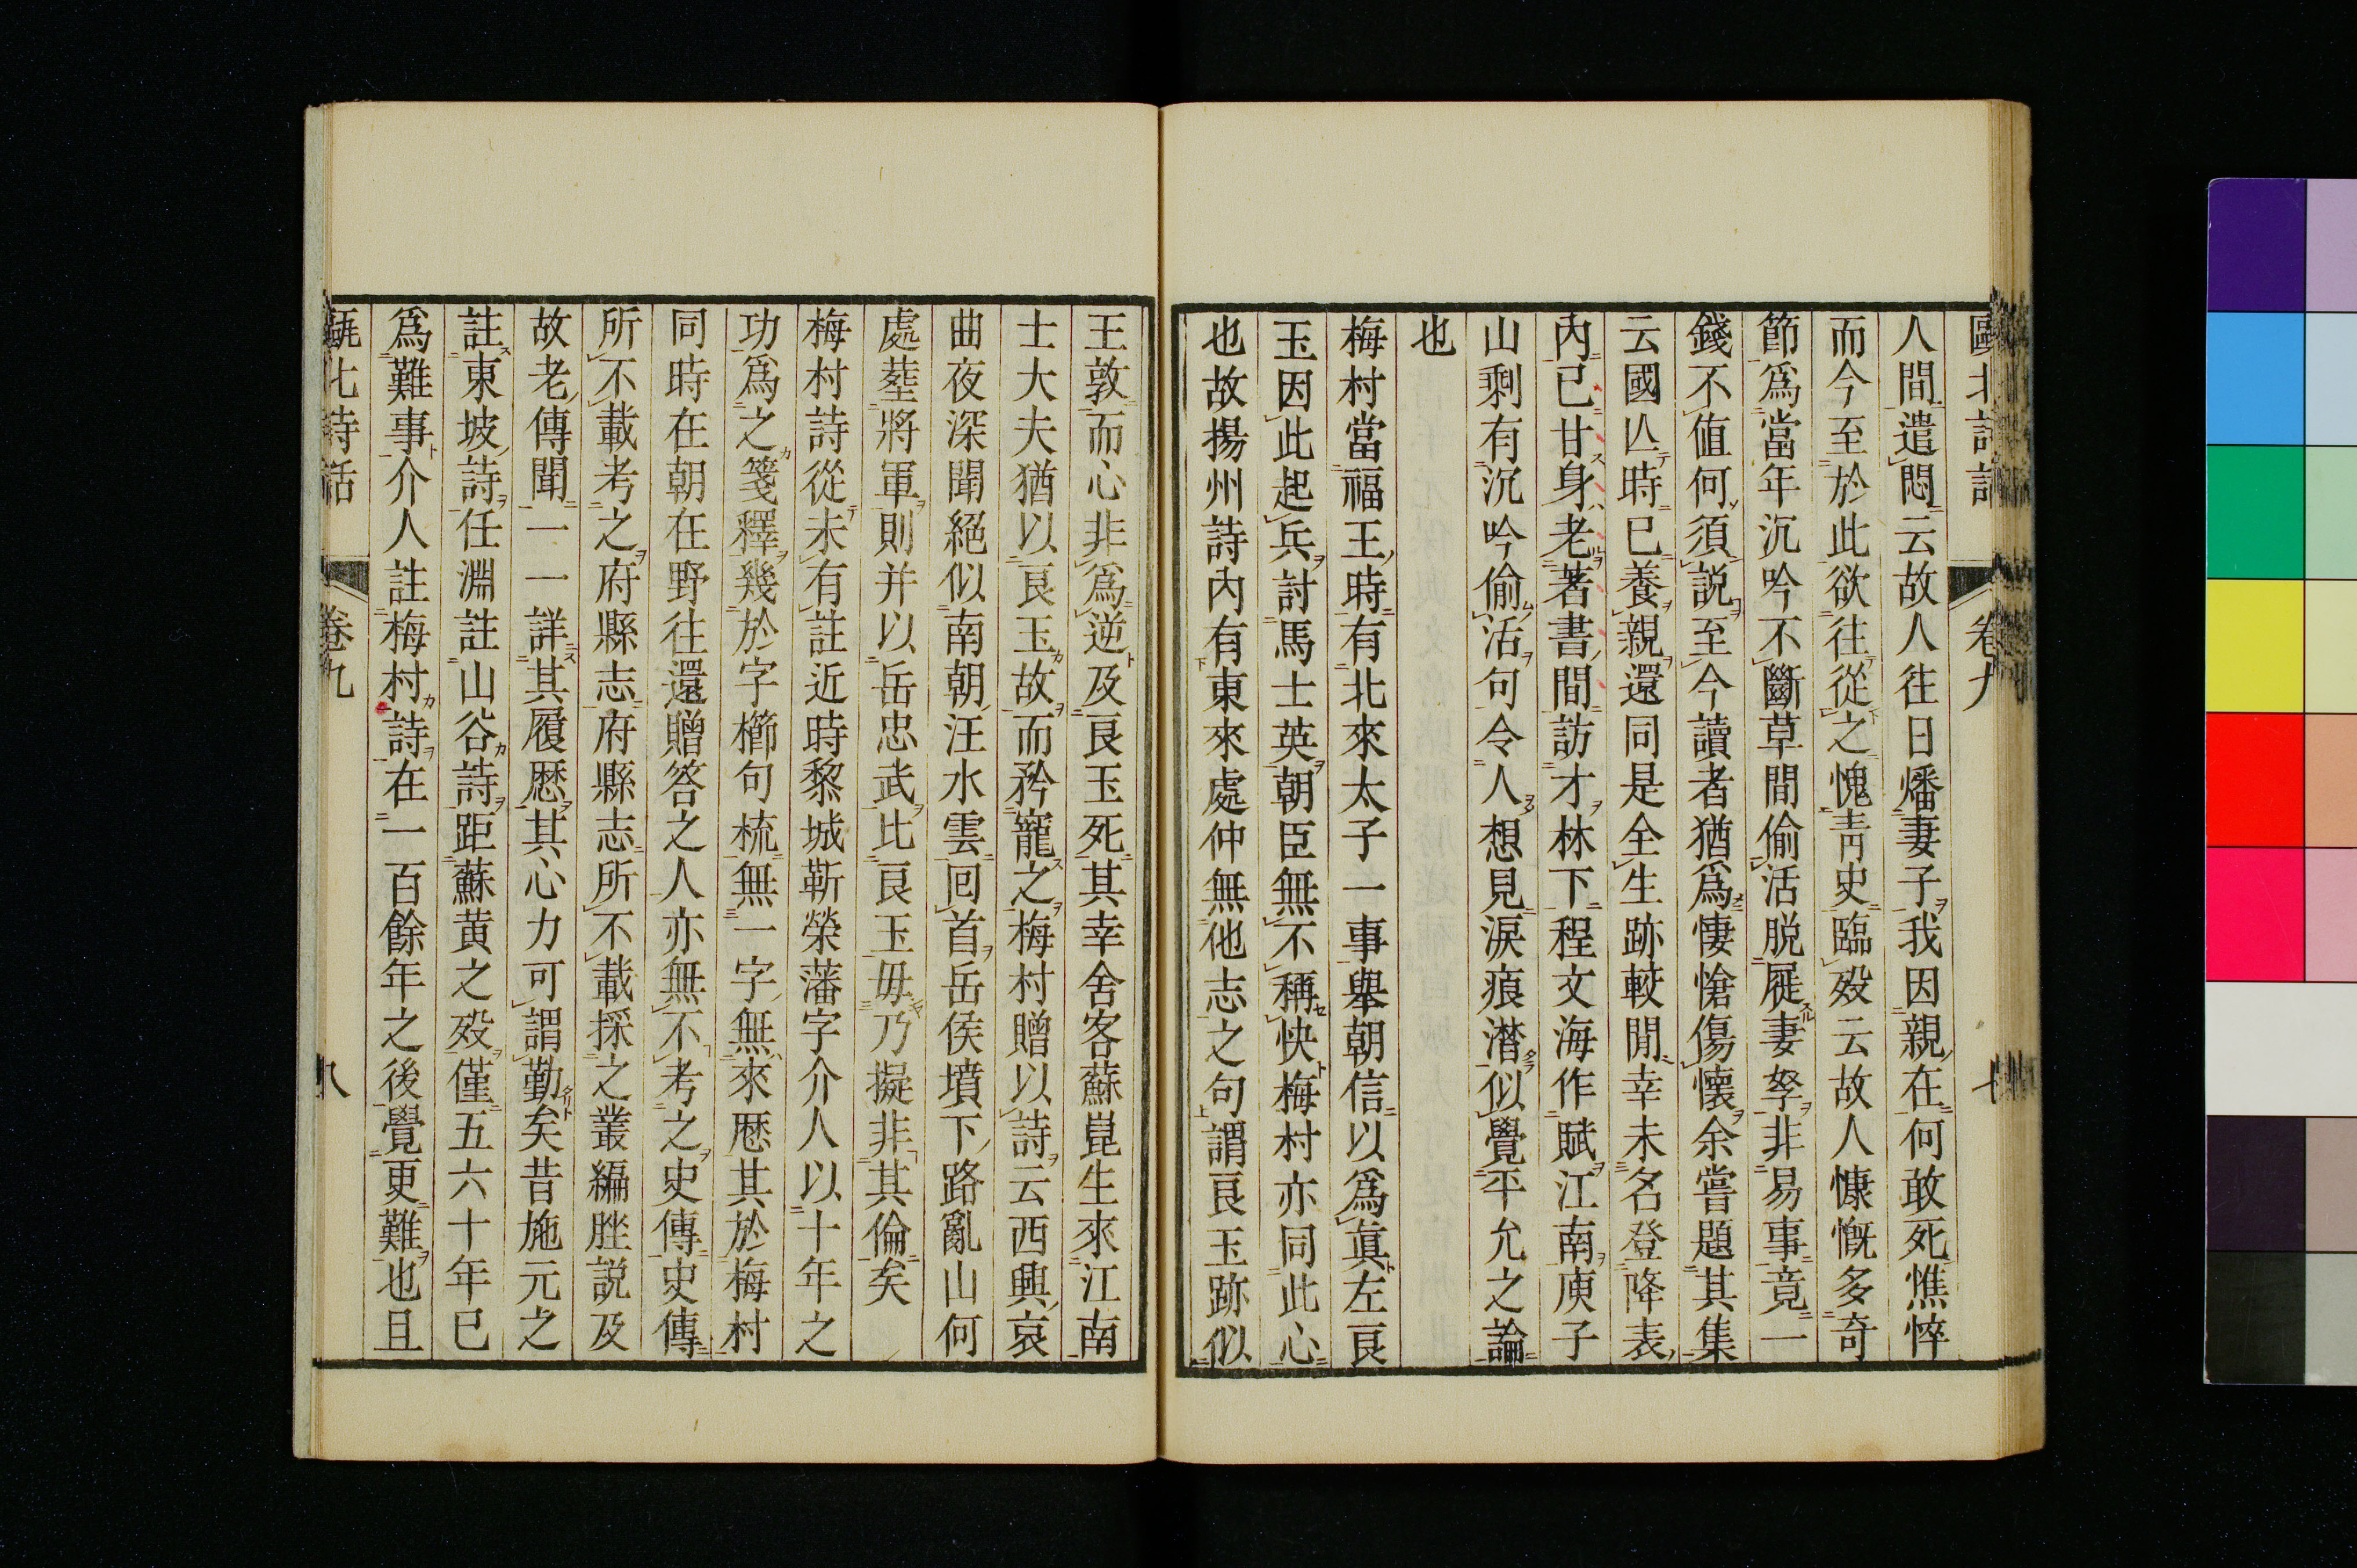 甌北詩話 卷九 七
人間遣悶云故人往日燔妻子我因親在何敢死憔悴
而今至於此欲往從之愧靑史臨歿云故人慷慨多奇
節爲當年沉吟不斷草間偷活脱屣妻孥非易事竟一
錢不値何須説至今讀者猶爲悽愴傷懷余嘗題其集
云國亾時已養親還同是全生跡較閒幸未名登降表
內已甘身老著書間訪才林下程文海作賦江南庾子
山剩有沉吟偷活句令人想見淚痕潸似覺平允之論
也
梅村當福王時有北來太子一事舉朝信以爲眞左良
玉因此起兵討馬士英朝臣無不稱快梅村亦同此心
也故揚州詩內有東來處仲無他志之句謂良玉跡似
王敦而心非爲逆及良玉死其幸舍客蘇崑生來江南
士大夫猶以良玉故而矜寵之梅村贈以詩云西興哀
曲夜深聞絕似南朝汪水雲回首岳侯墳下路亂山何
處塟將軍則并以岳忠武比良玉毋乃擬非其倫矣
梅村詩從未有註近時黎城靳榮藩字介人以十年之
功爲之箋釋幾於字櫛句梳無一字無來歷其於梅村
同時在朝在野往還贈答之人亦無不考之史傳史傳
所不載考之府縣志府縣志所不載採之叢編脞説及
故老傳聞一一詳其履歷其心力可謂勤矣昔施元之
註東坡詩任淵註山谷詩距蘇黄之歿僅五六十年已
爲難事介人註梅村詩在一百餘年之後覺更難也且
甌北詩話 卷九 八